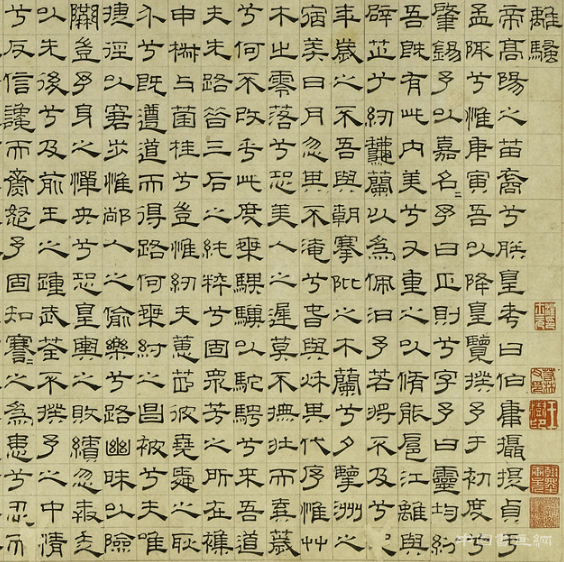 離騷
帝高陽之苗裔兮朕皇考曰伯庸攝提貞于
孟陬兮惟庚寅吾以降皇覽揆予于初度兮
肇錫予以嘉名〻予曰正則兮字予曰靈均紛
吾既有此內美兮又重之以脩能扈江離與
辟芷兮紉秋蘭以為佩汩予若將不及兮恐
年歲之不吾與朝搴阰之木蘭兮夕擥洲之
宿莽日月忽其不淹兮春與秋其代序惟艸
木之零落兮恐美人之遲莫不撫壯而棄薉
兮何不改乎此度乘騏驥以駝騁兮來吾道
夫先路昔三后之純粹兮固衆芳之所在襍
申椒与菌桂兮豈惟紉夫蕙茝彼堯舜之耿
介兮既遵道而得路何桀紂之昌被兮夫唯
捷徑以窘步惟人之偷樂兮路幽昧以險
隘豈予身之憚央兮恐皇輿之敗績忽奔走
以先後兮及前王之踵武荃不揆予之中情
兮反信讒而齌怒予固知謇〻之為患兮忍而